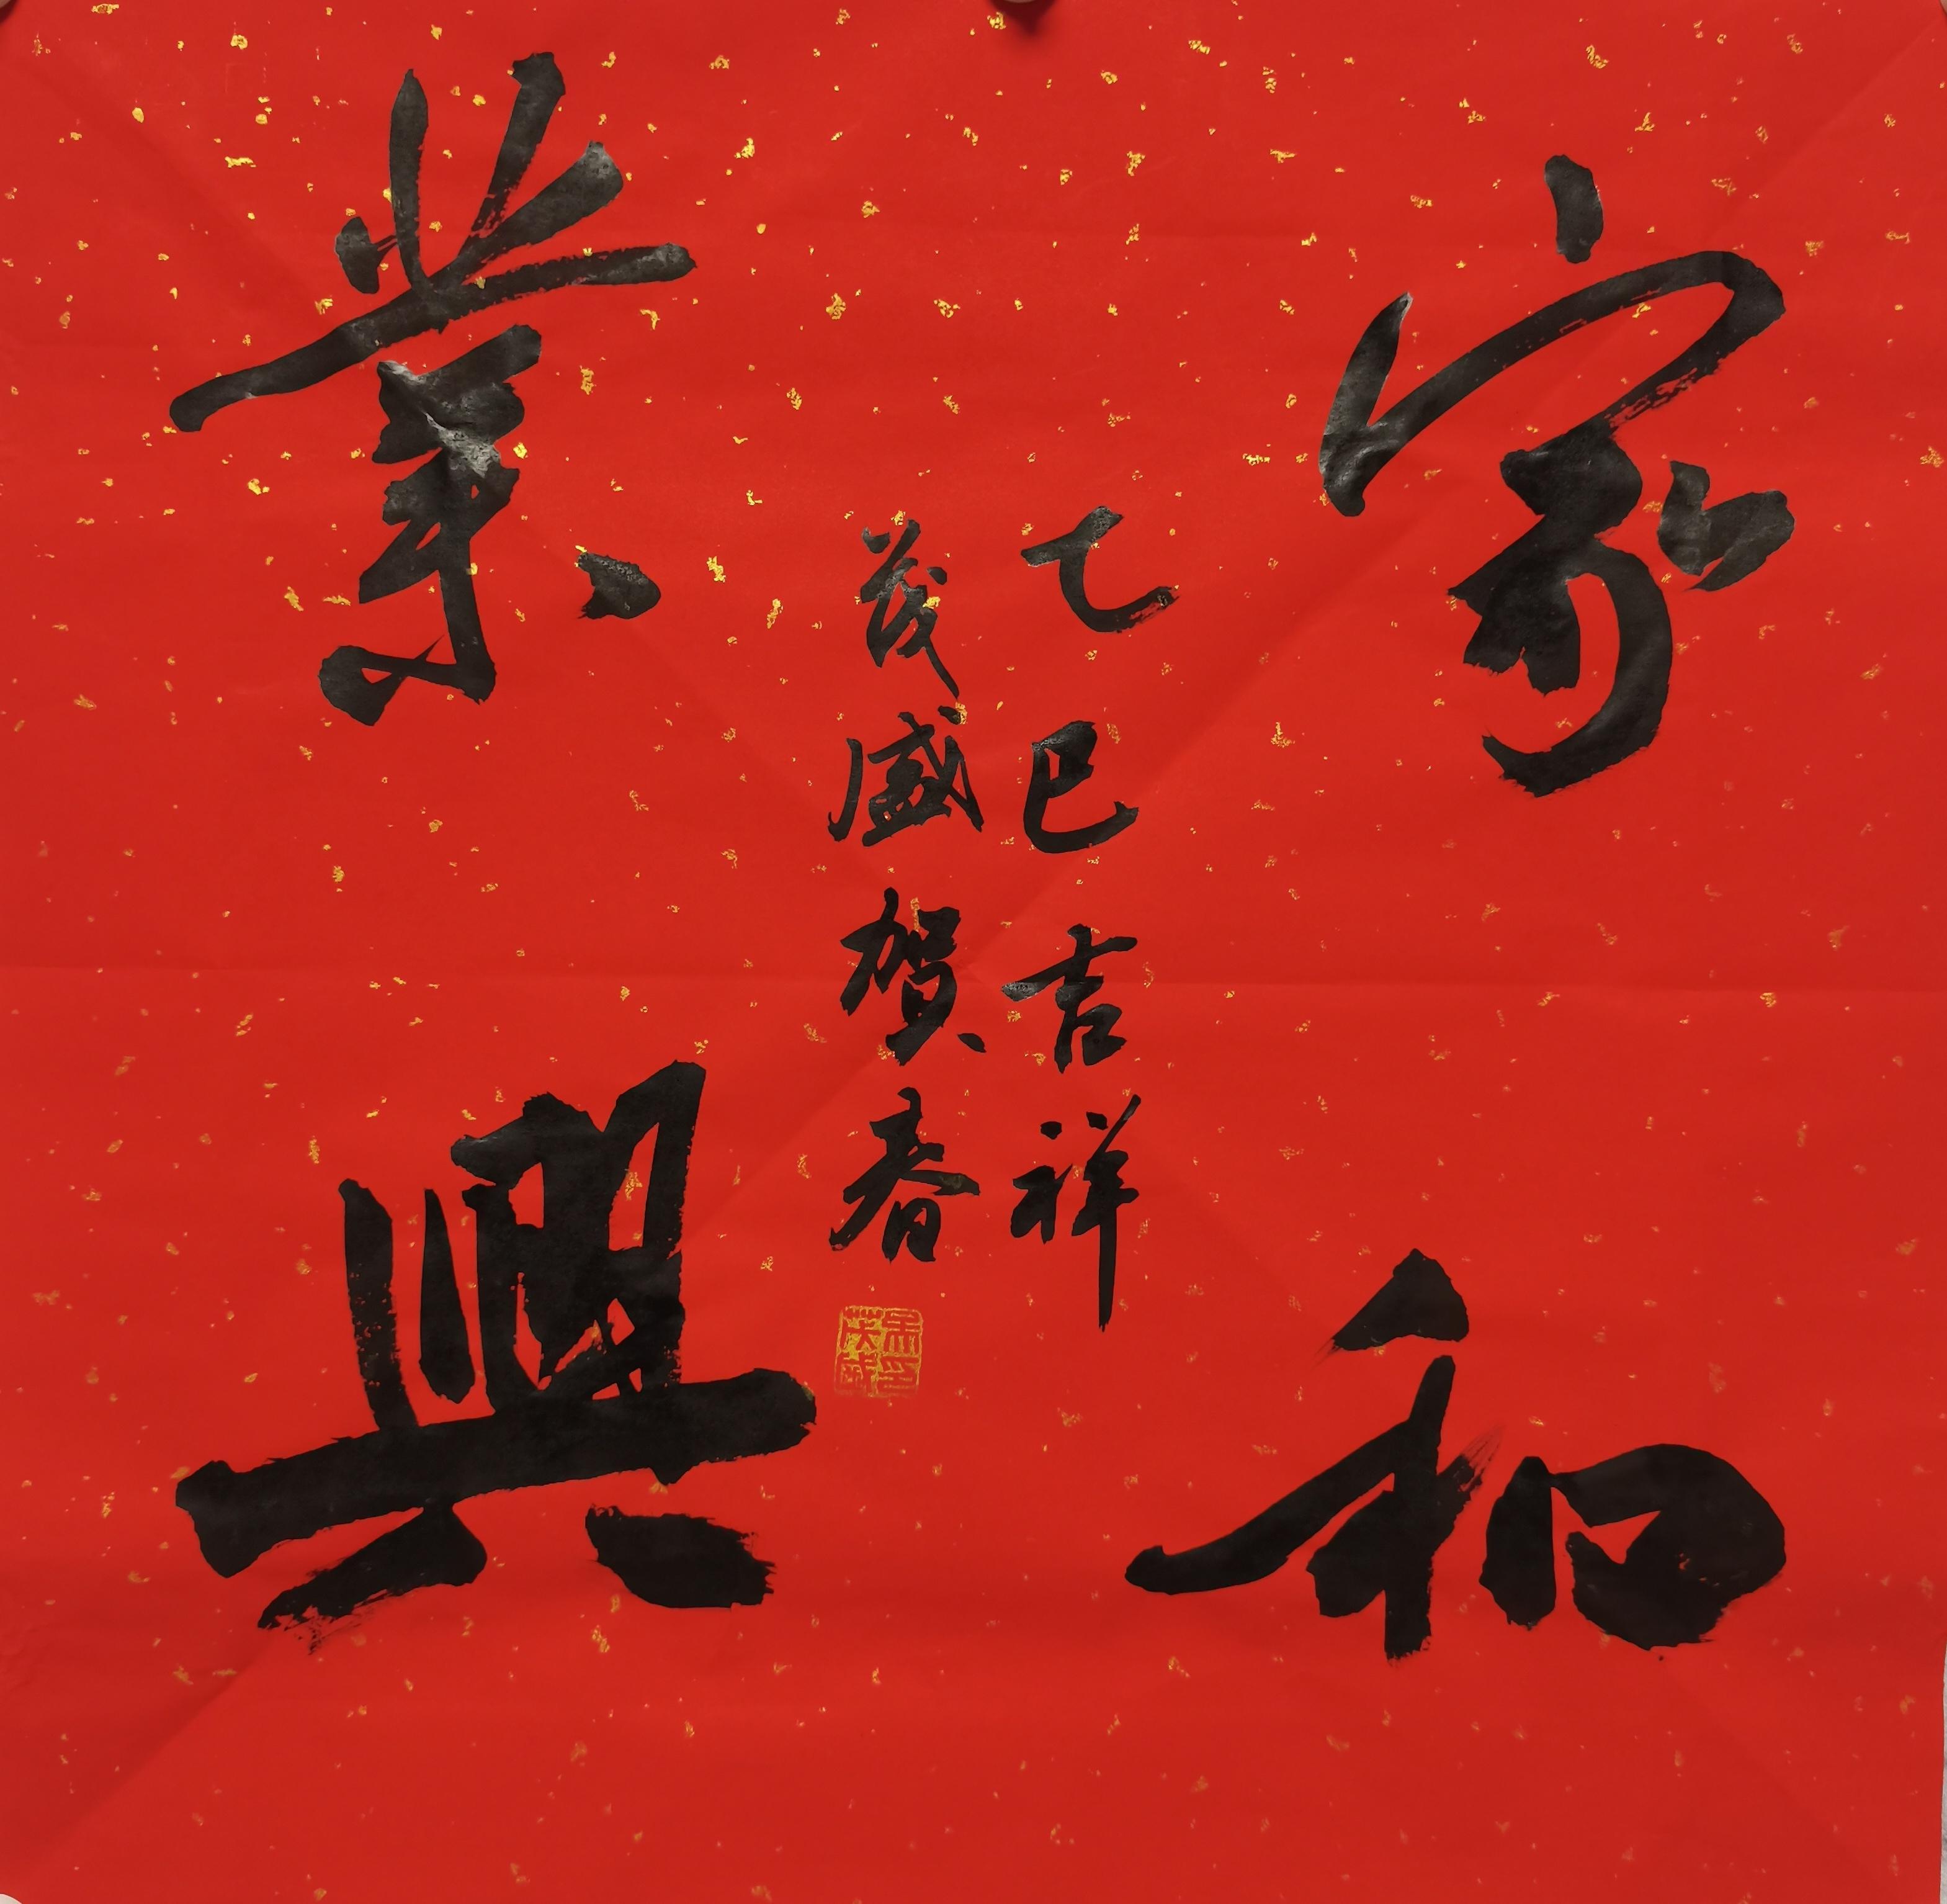 家和
乙巳吉祥
茂盛贺春
業興